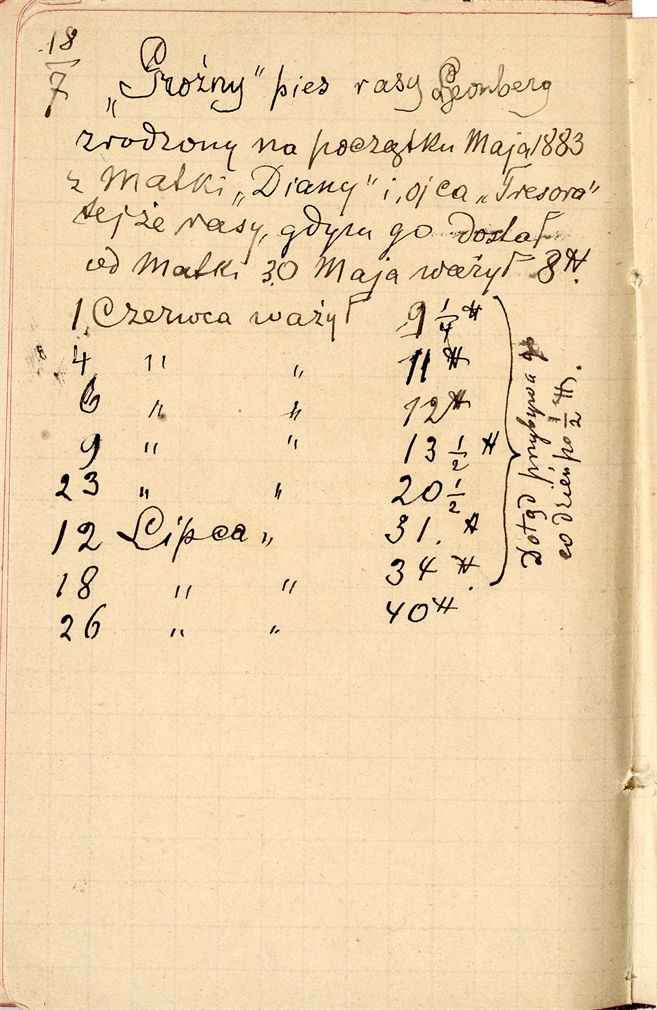 18
7
„Groźny" pies rasy Leonberg
zrodzony na początku Maja 1883
z Matki „Diany" i ojca „Tresora"
tejże rasy, gdym go dostał
od Matki 30 Maja ważył 8 ℔.
1 Czerwca ważył 9 1/4 ℔
4 " " 11 ℔
6 " " 12 ℔
9 " " 13 1/2 ℔
23 " " 20 1/2
12 Lipca " 31. ℔
18 " " 34 ℔.
26 " " 40 ℔
co dzień po 1/2 ℔.